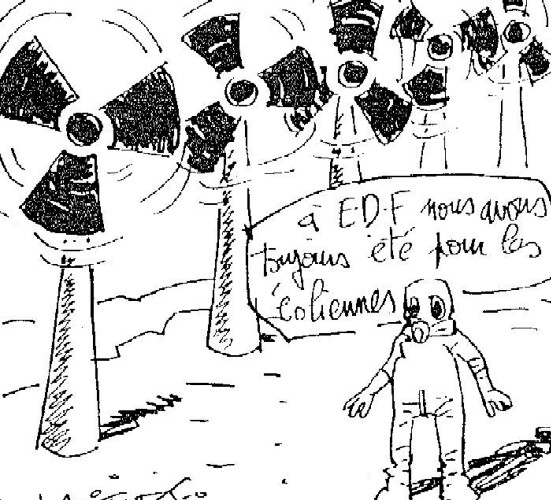 à E.D.F nous avons
toujours été pour les
éoliennes